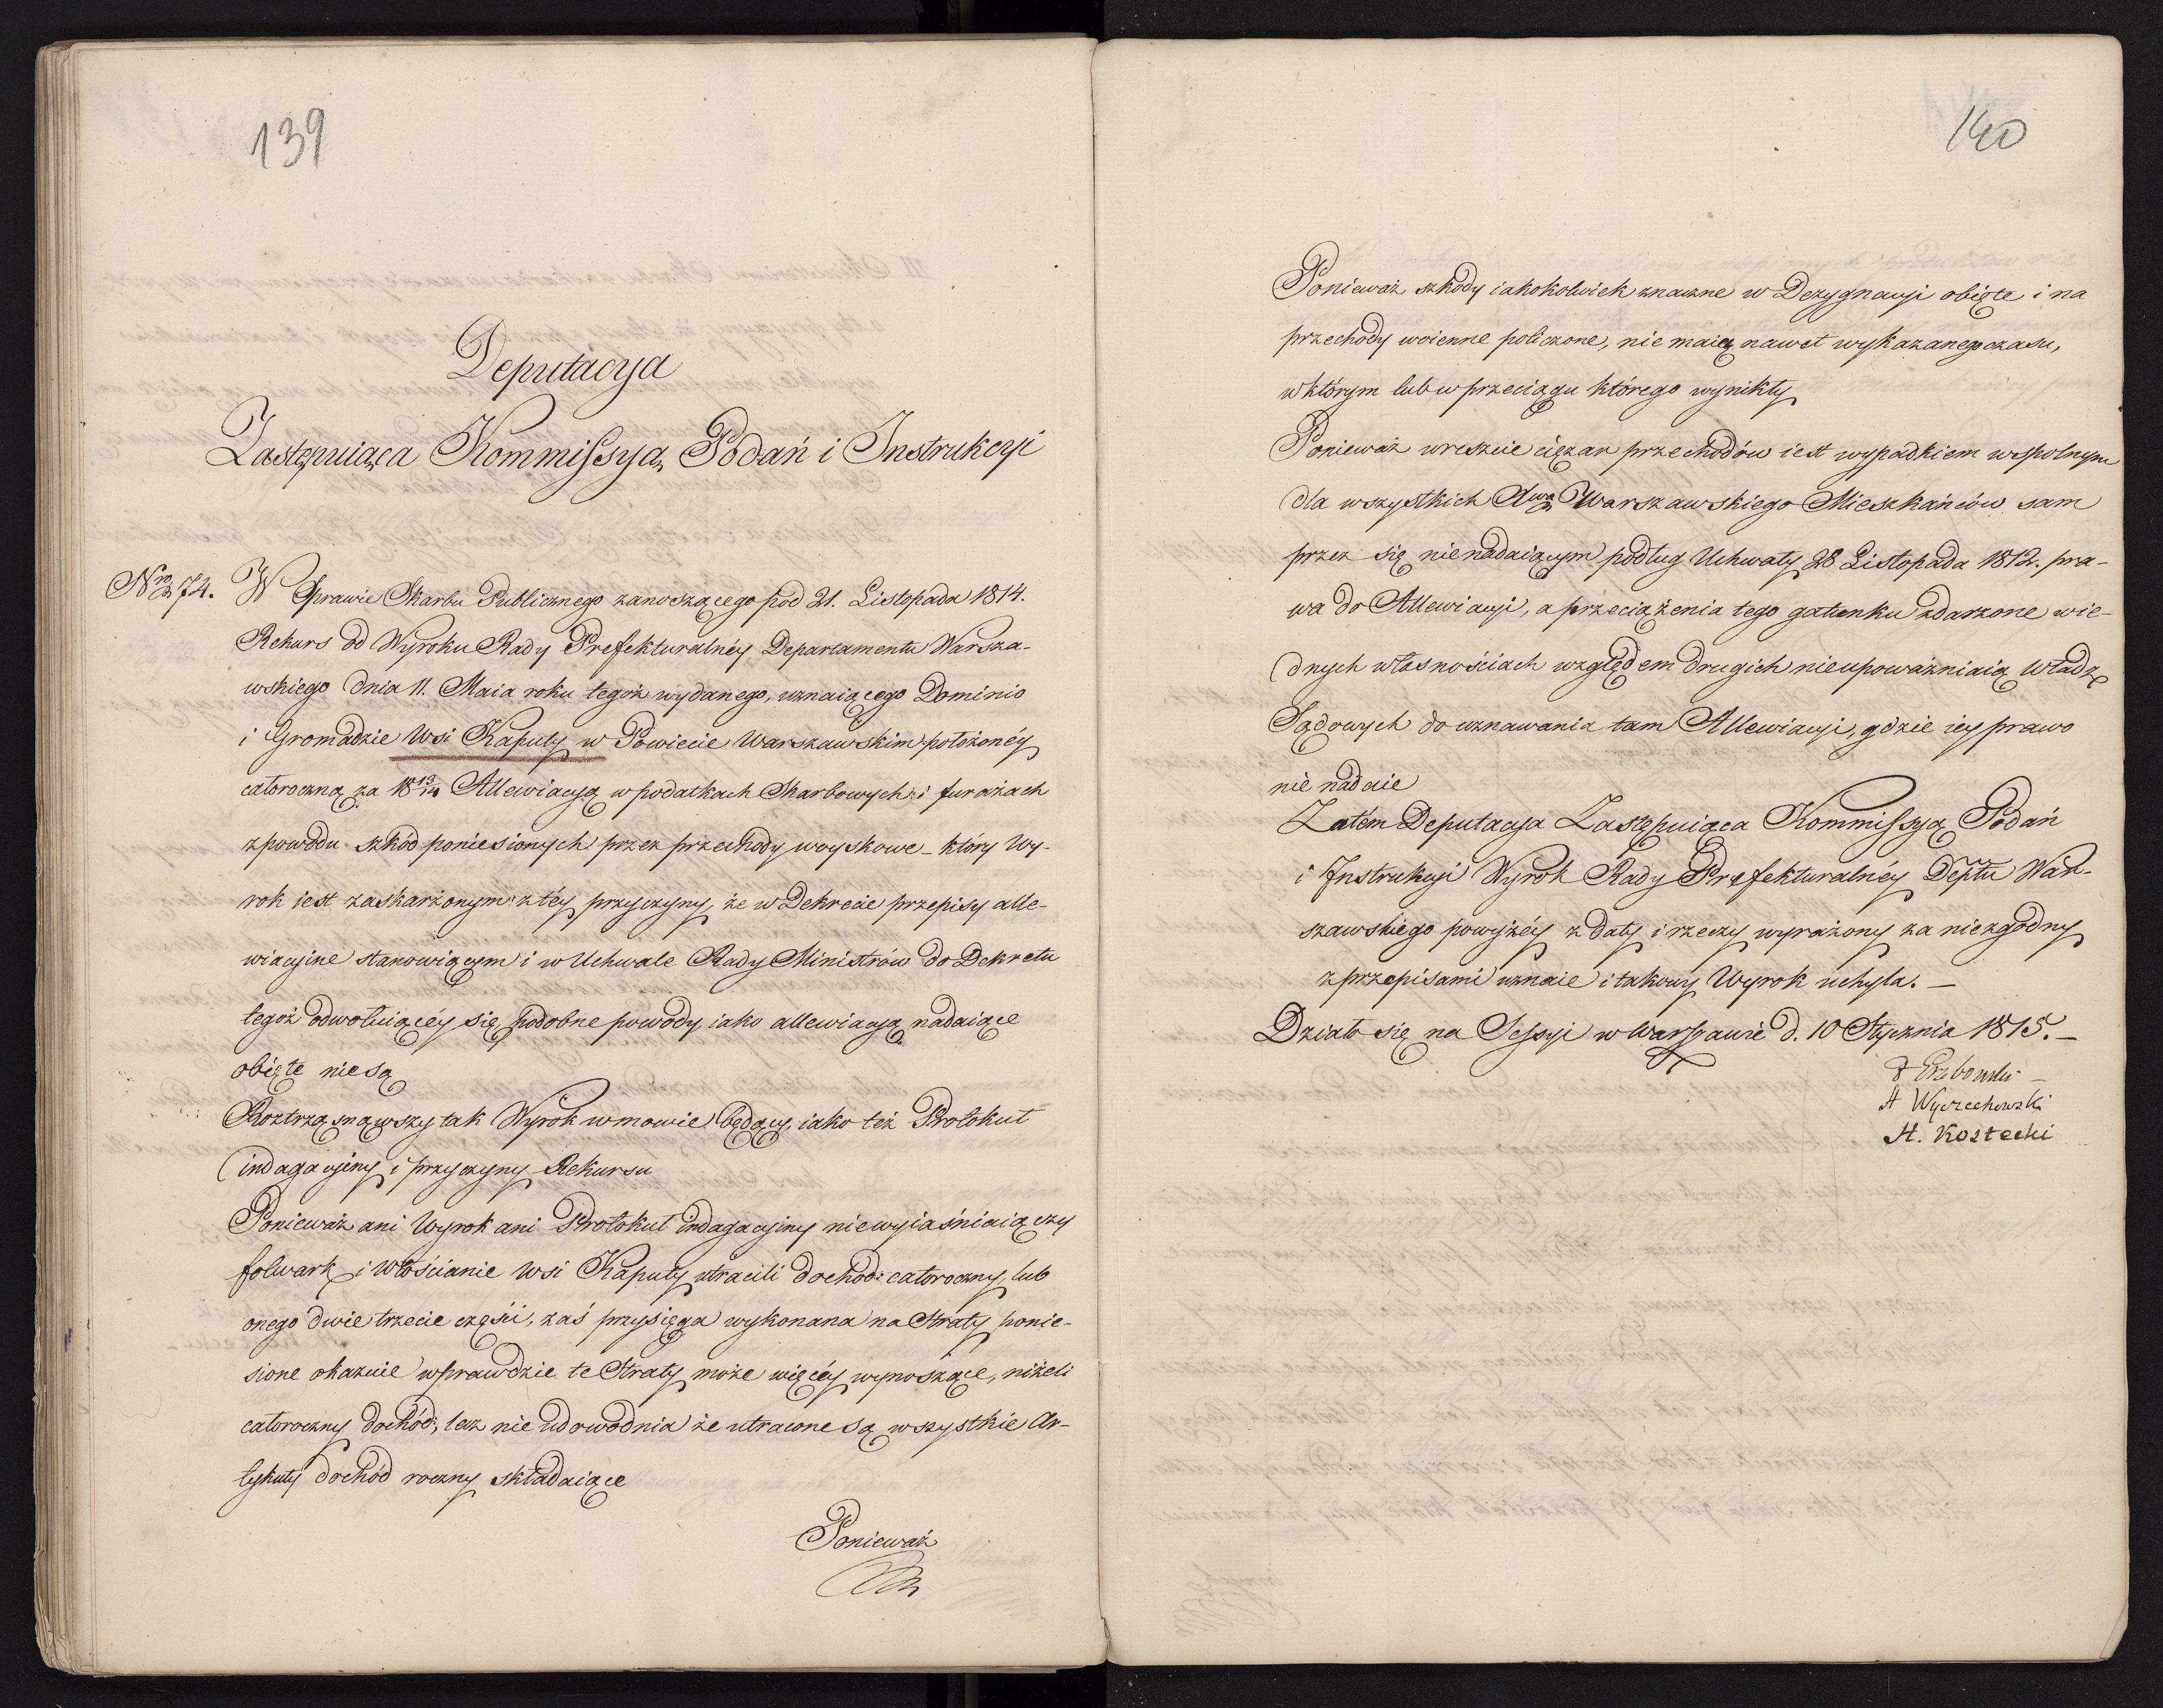 139
Deputacya
Zastępuiąca Kommissyą Podań i Instrukcyi
Nro 74. W Sprawie Skarbu Publicznego zanoszącego pod 21. Listopada 1814.
Rekurs od Wyroku Rady Prefekturalnéy Departamentu Warsza-
wskiego dnia 11. Maia roku tegoż wydanego, uznaiącego Dominio
i Gromadzie Wsi Kaputy w Powiecie Warszawskim położonéy
całoroczną za 1813/14 Allewiacyą w podatkach Skarbowych i furażach
z powodu szkód poniesionych przez przechody woyskowe – który Wy-
rok iest zaskarżonym z téy przyczyny, że w Dekrecie przepisy alle-
wiacyine stanowiącym i w Uchwale Rady Ministrów do Dekretu
tegoż odwołuiącéy się, podobne powody, iako allewiacyą nadaiące
obięte nie są
Roztrząsnąwszy tak Wyrok w mowie będący, iako też Protokuł
indagacyiny i przyczyny Rekursu
Ponieważ ani Wyrok ani Protokuł indagacyiny niewyiaśniaią czy
folwark i Włościanie Wsi Kaputy utracili dochód całoroczny, lub
onego dwie trzecie części, zaś przysięga wykonana na Straty ponie-
sione okazuie wprawdzie te Straty może więcéy wynoszące, niżeli
całoroczny dochód, lecz nie udowodnia że utracone są wszystkie Ar-
tykuły dochód roczny składaiące
Ponieważ
140
Ponieważ szkody iakokolwiek znaczne w Dezygnacyi obięte i na
przechody woienne policzone, nie maią nawet wykazanego czasu,
w którym lub w przeciągu którego wynikły
Ponieważ wreszcie ciężar przechodów iest wypadkiem wspolnym
dla wszystkich Xwa Warszawskiego Mieszkańców sam
przez się nienadaiącym podług Uchwały 28 Listopada 1812. pra-
wa do Allewiacyi, a przeciążenia tego gatunku zdarzone wie-
dnych własnościach względem drugich nieupoważniaią Władz
Sądowych do uznawania tam Allewiacyi, gdzie iey prawo
nie nadaie
Zatém Deputacya Zastępuiąca Kommissyą Podań
i Instrukcyi Wyrok Rady Prefekturalnéy Deptu War-
szawskiego powyżéy z daty i rzeczy wyrażony za niezgodny
z przepisami uznaie i takowy Wyrok uchyla. –
Działo się na Sessyi w Warszawie d. 10 Stycznia 1815. –
Grabowski
A Wyczechowski
H. Kostecki